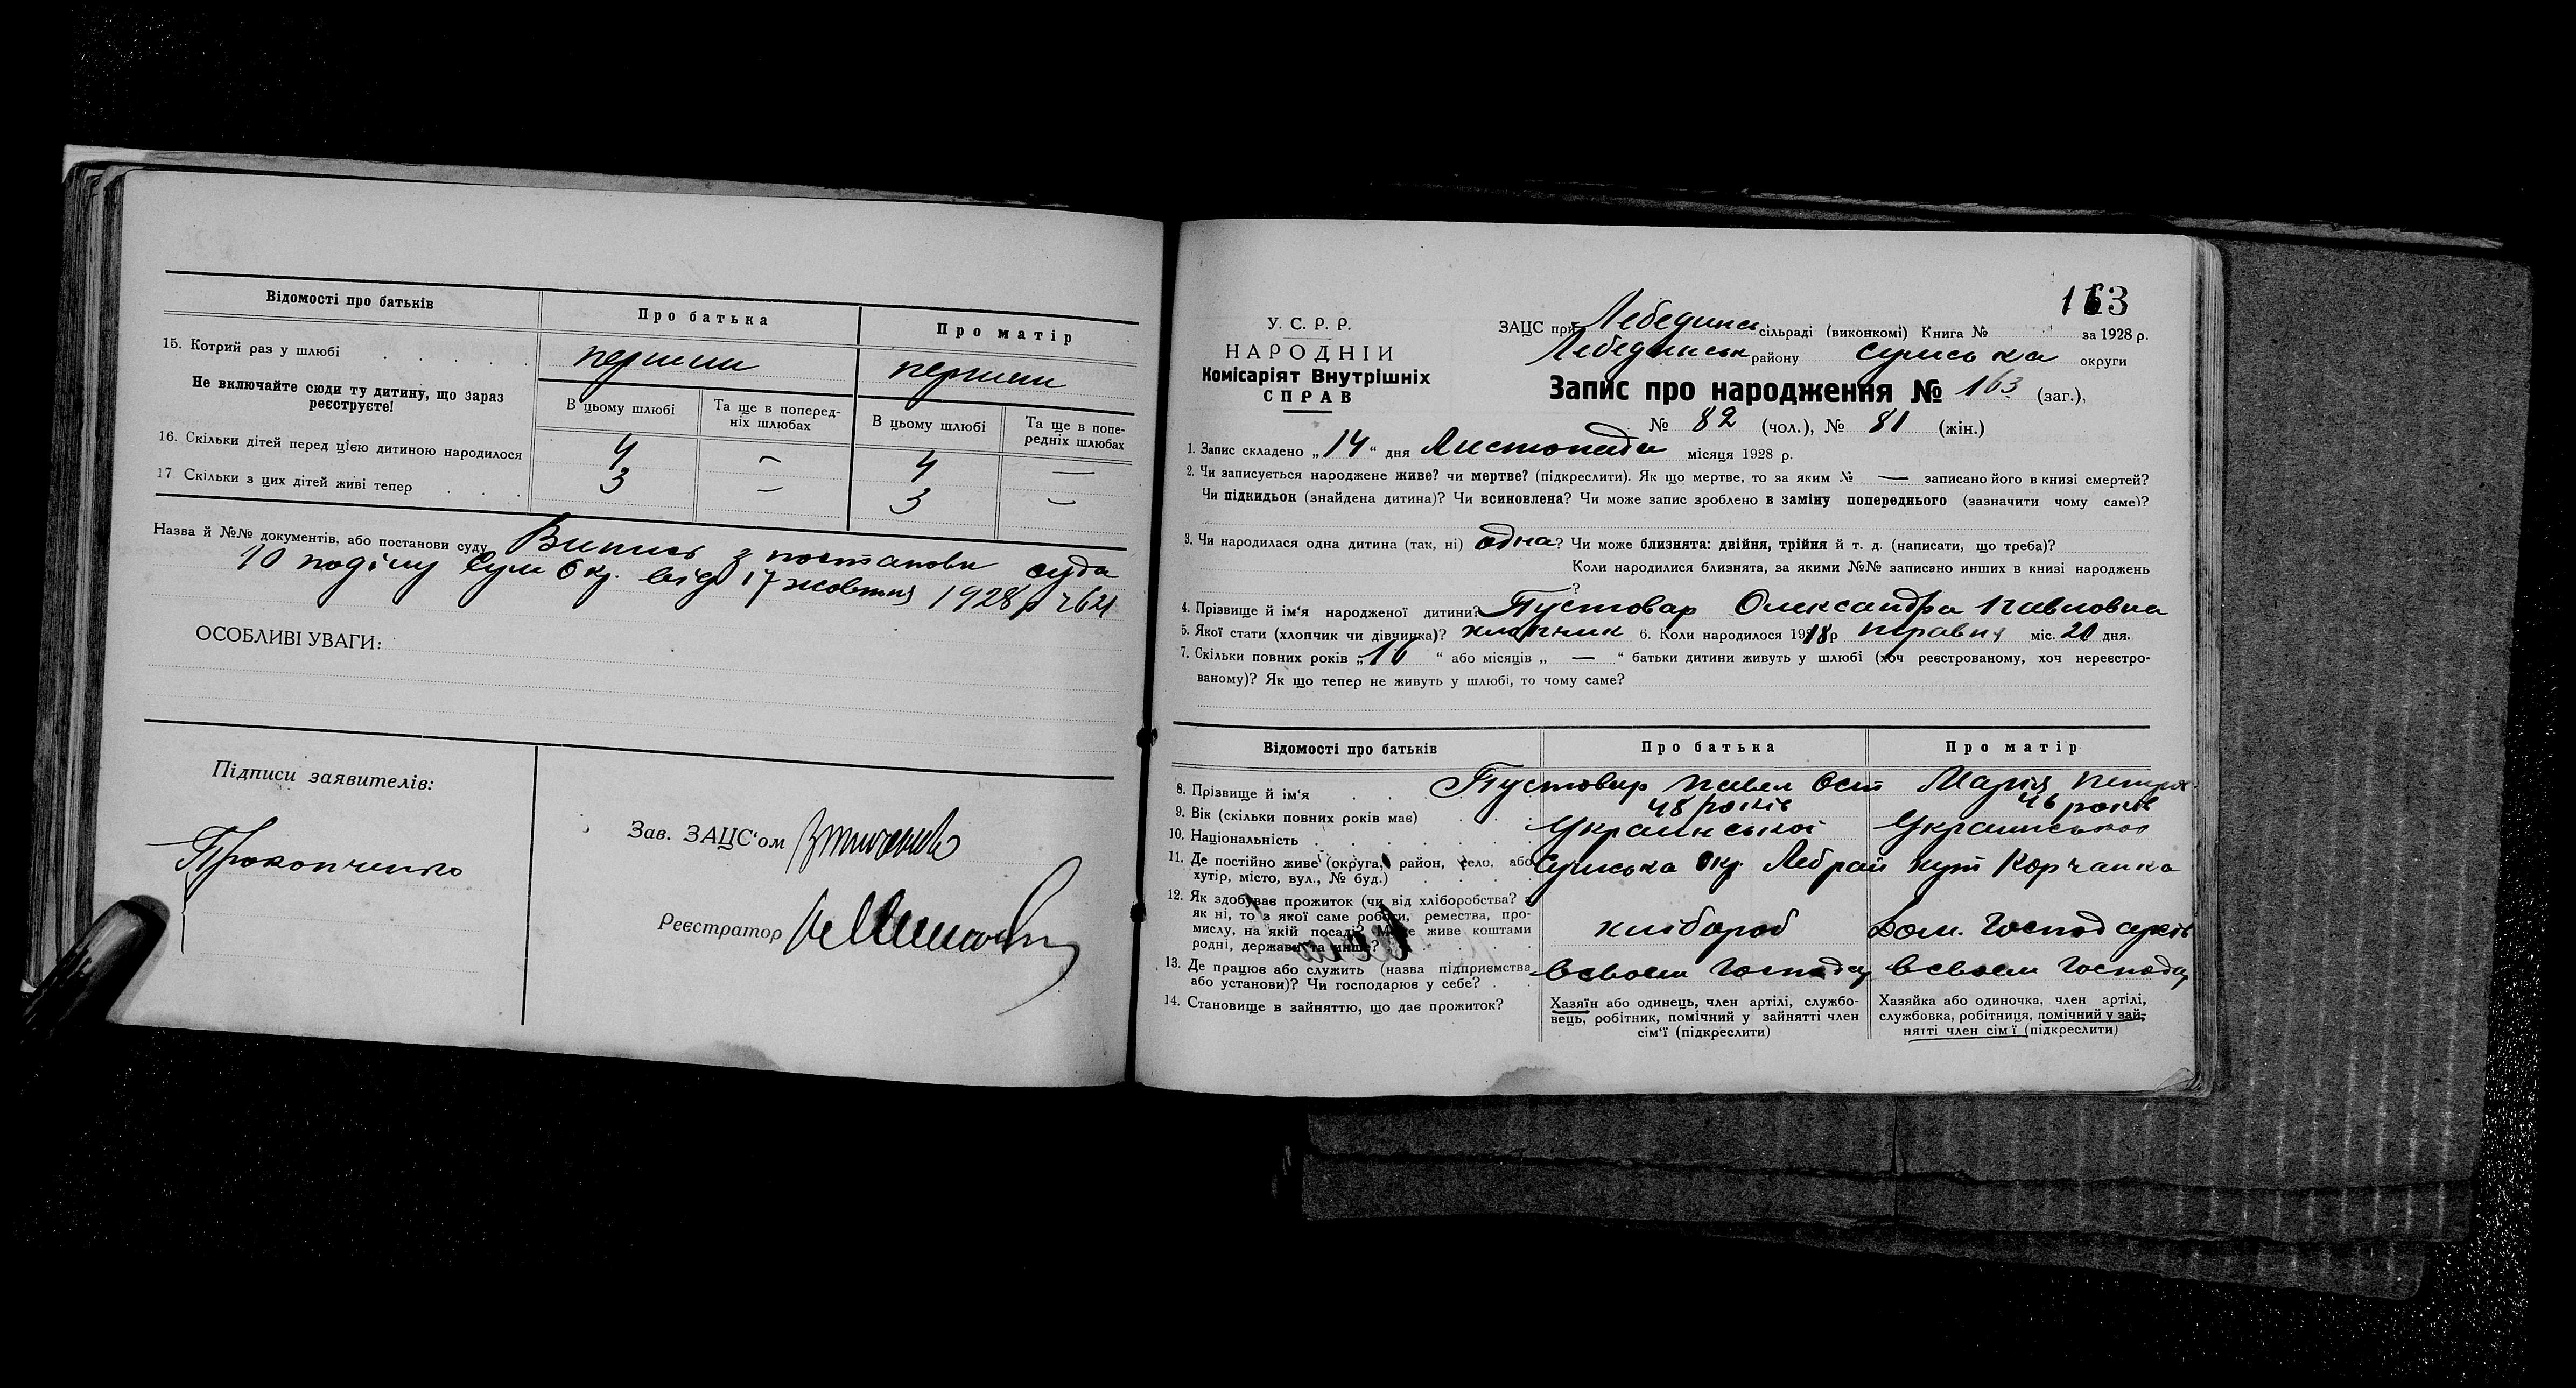 Відомості про батьків
Про батька
Про матір
15. Котрий раз у шлюбі
перший
перший
Не включайте сюди ту дитину, що зараз
реєструєте!
В цьому шлюбі
Та ще в поперед-
ніх шлюбах
В цьому шлюбі
Та ще в попе-
редніх шлюбах
16. Скільки дітей перед цією дитиною народилося
4 — 4 —
17 Скільки з цих дітей живі тепер
3 — 3 —
Назва й №№ документів, або постанови суду Випись з постанови суда
10 поділу Сум Окр. від 17 жовтня 1928 р
ОСОБЛИВІ УВАГИ:
Підписи заявителів:
Прокопченко
Зав. ЗАЦС'ом
Реєстратор
163
У. С. Р. Р.
НАРОДНІЙ
Комісаріят Внутрішніх
СПРАВ
ЗАЦС при Лебединсь сільраді (виконкомі) Книга № за 1928 р.
Лебединськ району Сумська округи
Запис про народження № 163 (заг.),
№ 82 (чол.), № 81 (жін.)
1. Запис складено „14“ дня Листопада місяця 1928 р.
2. Чи записується народжене живе? чи мертве? (підкреслити). Як що мертве, то за яким № — записано його в книзі смертей?
Чи підкидьок (знайдена дитина)? Чи всиновлена? Чи може запис зроблено в заміну попереднього (зазначити чому саме)?
3. Чи народилася одна дитина (так, ні) одна? Чи може близнята: двійня, трійня й т. д. (написати, що треба)?
Коли народилися близнята, за якими №№ записано инших в книзі народжень
?
4. Прізвище й ім'я народженої дитини? Пустовар Олександра Павловна
5. Якої стати (хлопчик чи дівчинка)? хлопчик 6. Коли народилося 1918р травня міс. 20 дня.
7. Скільки повних років „16“ або місяців „—“ батьки дитини живуть у шлюбі (хоч реєстрованому, хоч нереєстро-
ваному)? Як що тепер не живуть у шлюбі, то чому саме?
Відомості про батьків
Про батька
Про матір
8. Прізвище й ім'я
Пустовар Павел Ост
Марія Петров
9. Вік (скільки повних років має)
48 років
46 років
10. Національність
Украинської
Украинської
11. Де постійно живе (округа, район, село, або
хутір, місто, вул., № буд.)
Сумська Окр. Леб рай хут Корчанка
12. Як здобуває прожиток (чи від хліборобства? а
як ні, то з якої саме роботи, ремества, про-
мислу, на якій посаді? Може живе коштами
родні, держави та инше?
хлібороб
Дом. Господарств
13. Де працює або служить (назва підприємства
або установи)? Чи господарює у себе?
в своем Господар
в своем Господар
14. Становище в зайняттю, що дає прожиток?
Хазяїн або одинець, член артілі, службо-
вець, робітник, помічний у зайнятті член
сім'ї (підкреслити)
Хазяйка або одиночка, член артілі,
службовка, робітниця, помічний у зай-
нятті член сім'ї (підкреслити)